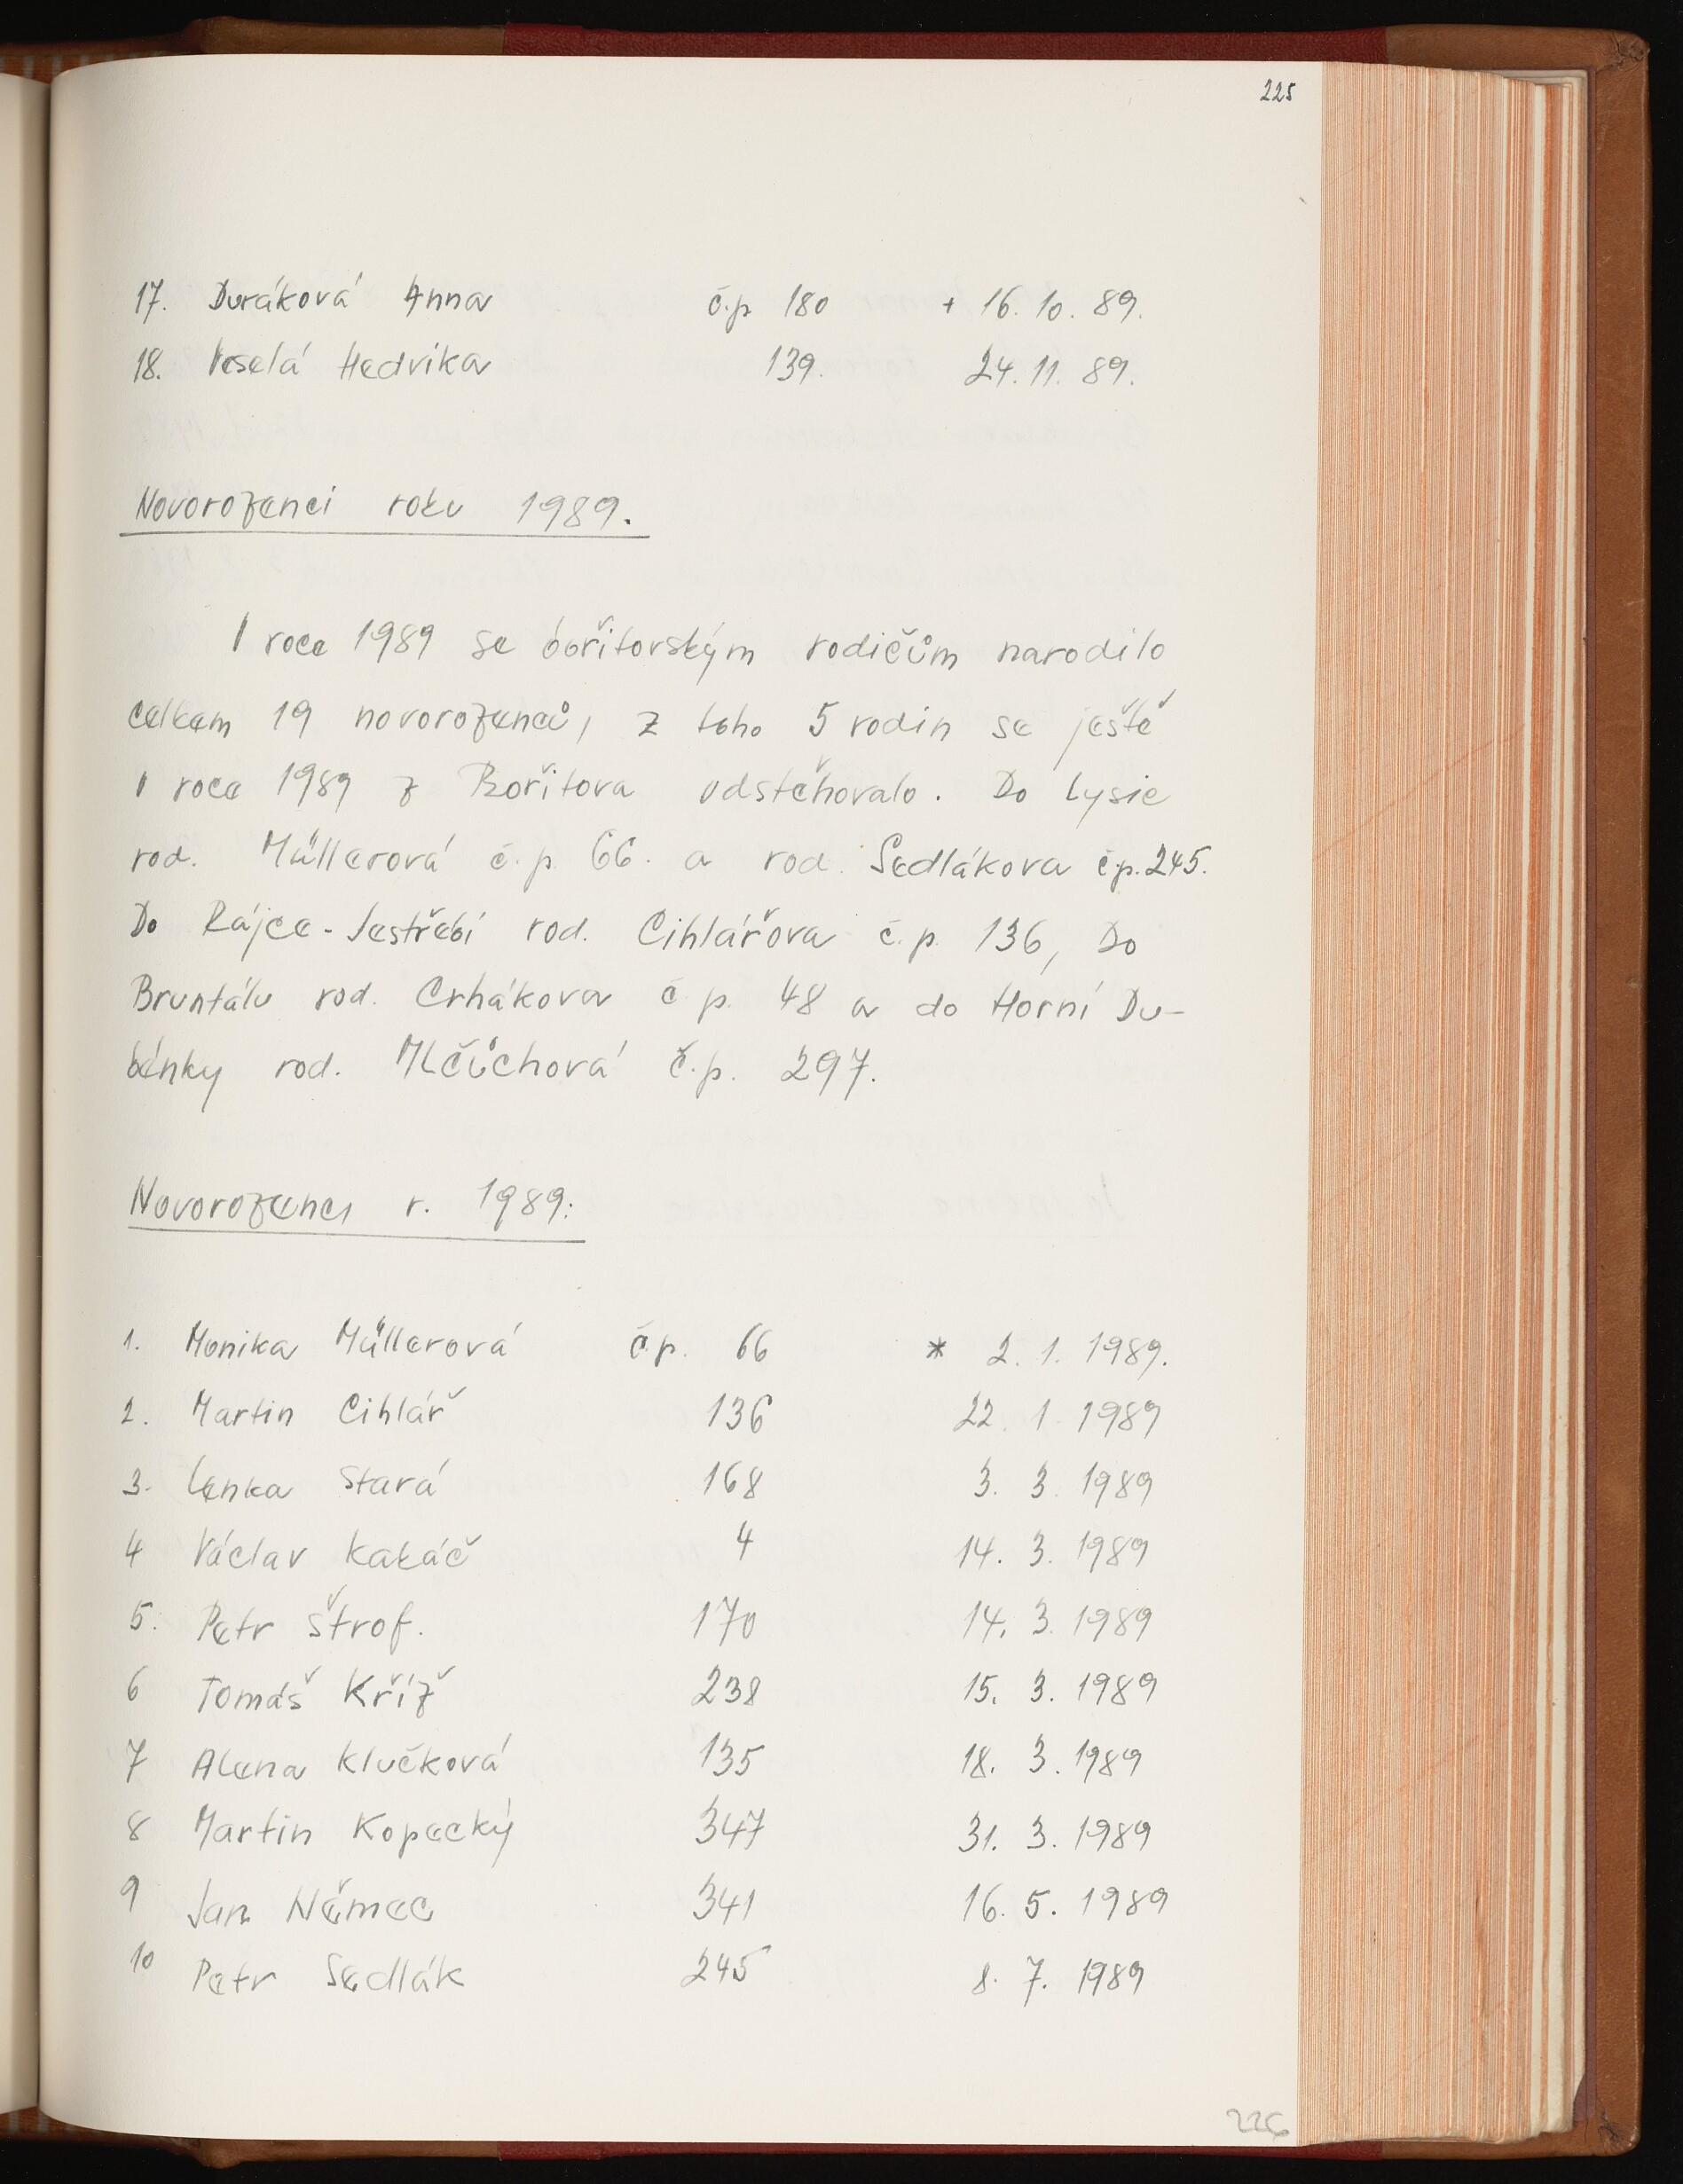 225
17. Duráková Anna č.p. 180 + 16. 10. 89.
18. Veselá Hedvika 139. 24. 11. 89.
Novorozenci roku 1989.
V roce 1989 se bořitovským rodičům narodilo
celkem 19 novorozenců, z toho 5 rodin se ještě
v roce 1989 z Bořitova odstěhovalo. Do Lysic
rod. Müllerová č.p. 66. a rod. Sedlákova čp. 245.
Do Rájce-Jestřebí rod. Cihlářova č.p. 136, Do
Bruntálu rod. Crhákova č p. 48 a do Horní Du-
bénky rod. Mlčůchová č.p. 297.
Novorozenci r. 1989:
1. Monika Müllerová č.p. 66 * 2. 1. 1989.
2. Martin Cihlář 136 22. 1. 1989
3. Lenka Stará 168 3. 3. 1989
4 Václav Kakáč 4 14. 3. 1989
5. Petr Štrof. 170 14. 3. 1989
6 Tomáš Kříž 238 15. 3. 1989
7 Alena Klučková 135 18. 3. 1989
8 Martin Kopecký 347 31. 3. 1989
9 Jan Němec 341 16. 5. 1989
10 Petr Sedlák 245 8. 7. 1989
226